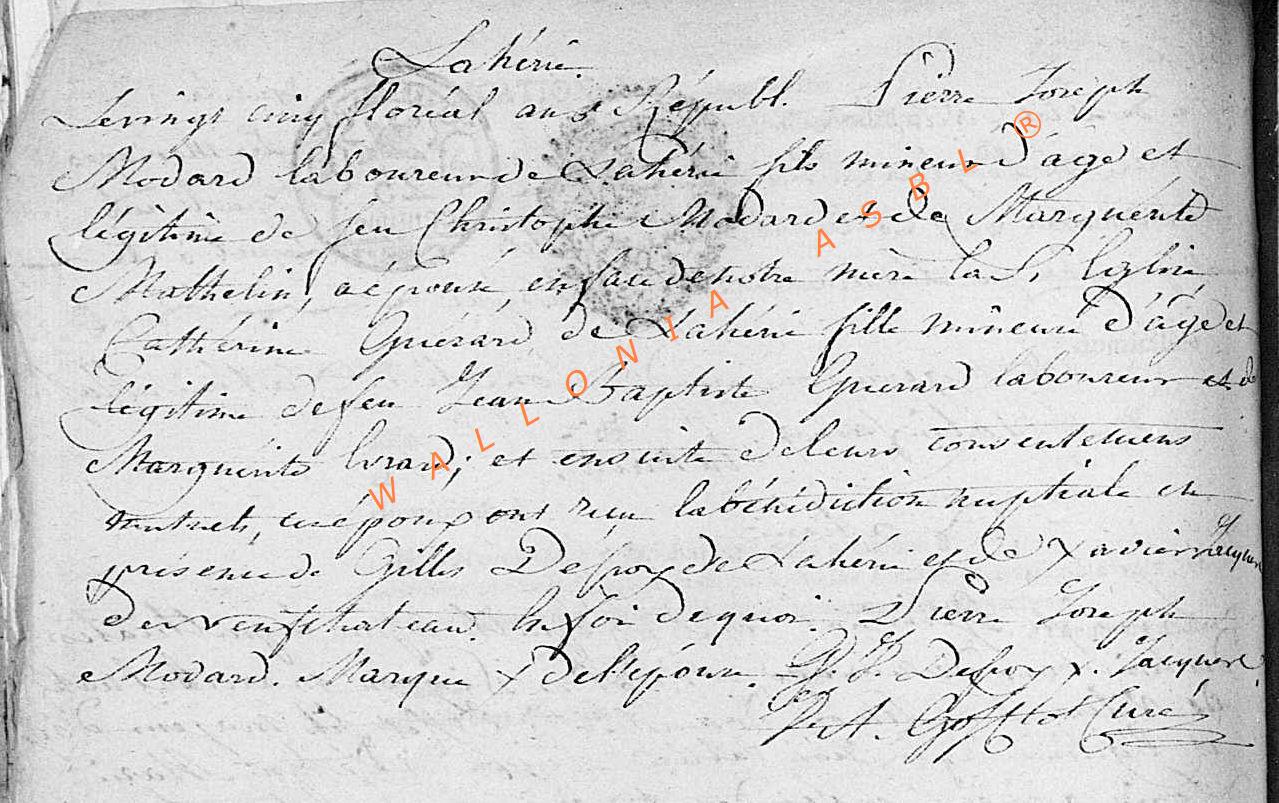 Lahérie.
Le vingt cinq floréal an 8 Républ. Pierre Joseph
Modard laboureur de Lahérie fils mineur d'âge et
légitime de feu Christophe Modard et de Marguerite
Mathelin, a épousé, en face de notre mere la Ste Eglise
Cathérine Guérard de Lahérie fille mineure d'âge et
légitime de feu Jean Baptiste Guérard laboureur et de
Marguerite Evrard; et ensuite de leurs consentemens
mutuels, ces époux ont recu la bénédiction nuptiale en
présence de Gilles Defoy de Lahérie et de Xavier Jacques
de neufchateau. En foi de quoi. Pierre Joseph
Modard. Marque x de l'épouse. G. J. Defoy X. Jacques
Curé
WALLONIA ASBL ®